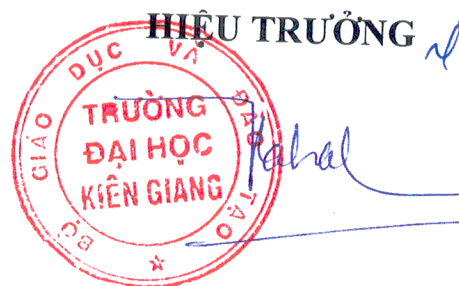 HIỆU TRƯỞNG
BỘ GIÁO DỤC VÀ ĐÀO TẠO
TRƯỜNG
ĐẠI HỌC
KIÊN GIANG